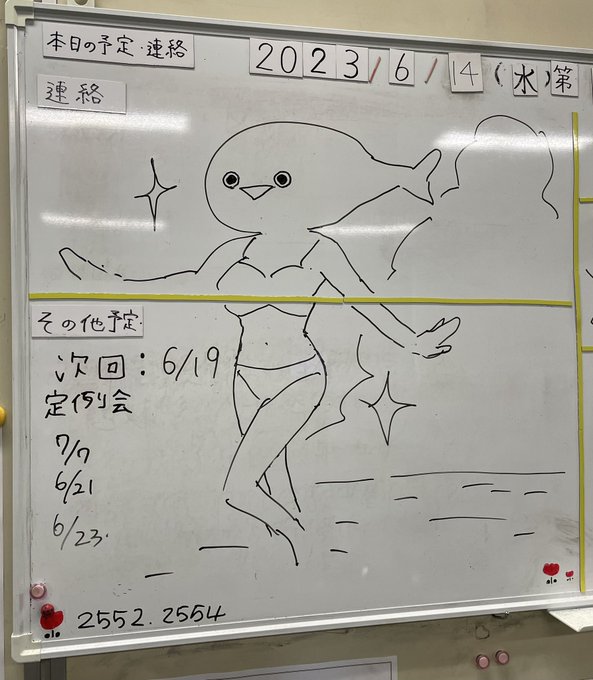 本日の予定・連絡
2023/6/14(水)第
連絡
その他予定
次回：6/19
定例会
7/7
6/21
6/23.
2552.2554